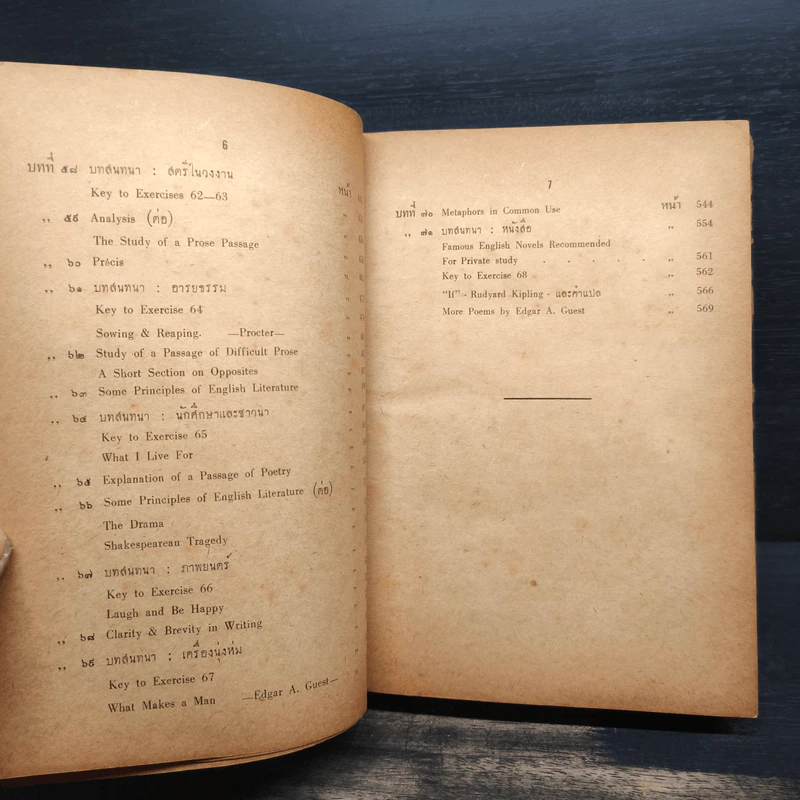 6
บทที่ ๕๘ บทสนทนา : สตรีในวงงาน
Key to Exercises 62—63 หน้า
,, ๕๙ Analysis (ต่อ) ,,
The Study of a Prose Passage ,,
,, ๖๐ Précis ,,
,, ๖๑ บทสนทนา : อารยธรรม ,,
Key to Exercise 64 ,,
Sowing & Reaping. —Procter— ,,
,, ๖๒ Study of a Passage of Difficult Prose ,,
A Short Section on Opposites ,,
,, ๖๓ Some Principles of English Literature ,,
,, ๖๔ บทสนทนา : นักศึกษาและชาวนา ,,
Key to Exercise 65 ,,
What I Live For ,,
,, ๖๕ Explanation of a Passage of Poetry ,,
,, ๖๖ Some Principles of English Literature (ต่อ) ,,
The Drama ,,
Shakespearean Tragedy ,,
,, ๖๗ บทสนทนา : ภาพยนตร์ ,,
Key to Exercise 66 ,,
Laugh and Be Happy ,,
,, ๖๘ Clarity & Brevity in Writing ,,
,, ๖๙ บทสนทนา : เครื่องนุ่งห่ม ,,
Key to Exercise 67 ,,
What Makes a Man —Edgar A. Guest— ,,
7
บทที่ ๗๐ Metaphors in Common Use หน้า 544
,, ๗๑ บทสนทนา : หนังสือ ,, 554
Famous English Novels Recommended
For Private study . . . . . ,, 561
Key to Exercise 68 ,, 562
"If" - Rudyard Kipling - และคำแปล ,, 566
More Poems by Edgar A. Guest ,, 569